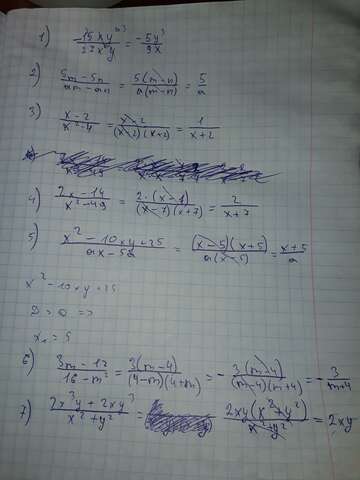 1) -15xy³/27x²y = -5y³/9x
2) 5m-5n/am-an = 5(m-n)/a(m-n) = 5/a
3) x-2/x²-4 = x-2/(x-2)(x+2) = 1/x+2
4) 2x-14/x²-49 = 2·(x-7)/(x-7)(x+7) = 2/x+7
5) x²-10xy+25/ax-5a = (x-5)(x+5)/a(x-5) = x+5/a
x²-10xy+25
D=0 =>
x₁=5
6) 3m-12/16-m² = 3(m-4)/(4-m)(4+m) = -3(m-4)/(m-4)(m+4) = -3/m+4
7) 2x³y+2xy³/x²+y² = 2xy(x²+y²)/x²+y² = 2xy